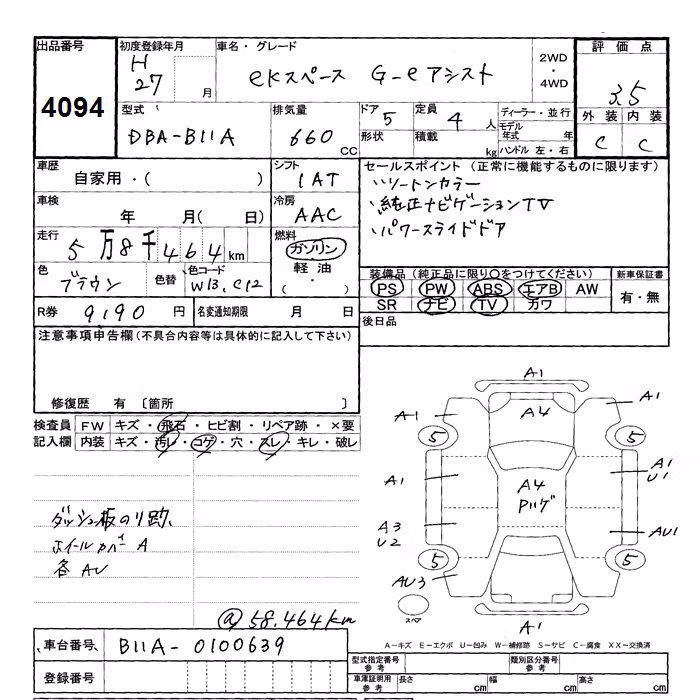 出品番号 4094
初度登録年月 H 27 月
車名・グレード eKスペース G-eアシスト
2WD・4WD
評価点 3.5
外装 内装
C C
型式 DBA-B11A
排気量 660 CC
ドア 5 定員 4 人
形状 積載 kg
ディーラー・並行
モデル年式 年
ハンドル 左・右
車歴 自家用・( )
シフト IAT
車検 年 月( 日)
冷房 AAC
走行 5万8千464km
燃料 ガソリン 軽油・( )
色 ブラウン 色替 色コード W13, C12
セールスポイント (正常に機能するものに限ります)
・ツートンカラー
・純正ナビゲーションTV
・パワースライドドア
装備品(純正品に限り○をつけてください) 新車保証書
PS PW ABS エアB AW 有・無
SR ナビ TV カワ
R券 9190 円 名変通知期限 月 日
後日品
注意事項申告欄(不具合内容等は具体的に記入して下さい)
修復歴 有 〔箇所 〕
検査員 FW キズ・飛石・ヒビ割・リペア跡・×要
記入欄 内装 キズ・汚レ・コゲ・穴・スレ・キレ・破レ
ダッシュ板のり跡、
ホイールカバー A
各 AU
@58.464km
A1
A1 A4 A1
5 5
A1 A4 A1 U1
Pハゲ
A3 U2 AU1
5 5
AU3
スペア A1
A－キズ E－エクボ U－凹み W－補修跡 S－サビ C－腐食 XX－交換済
車台番号 B11A-0100639
型式指定番号 参考 類別区分番号 参考
登録番号
車庫証明用 参考 長さ cm 幅 cm 高さ cm